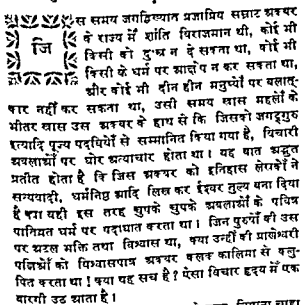 जिस समय जगद्विख्यात प्रजाप्रिय सम्राट अकबर
के राज्य में शांति विराजमान थी, कोई भी
किसी को दुःख न दे सकता था, कोई भी
किसी के धर्म पर आक्षेप न कर सकता था,
और कोई भी दीन हीन मनुष्यों पर बलात्-
कार नहीं कर सकता था, उसी समय खास महलों के
भीतर खास उस अकबर के हाथ से कि जिसको जगद्गुरु
इत्यादि पूज्य पदवियों से सम्मानित किया गया है, बिचारी
अबलाओं पर घोर अत्याचार होता था। यह बात अद्भुत
प्रतीत होता है कि जिस अकबर को इतिहास लेखकों ने
सत्यवादी, धर्मनिष्ठ आदि लिख कर ईश्वर तुल्य बना दिया
है क्या यही इस तरह चुपके चुपके अबलाओं के पवित्र
पातिव्रत धर्म पर पदाघात करता था। जिन पुरुषों की उस
पर अटल भक्ति तथा विश्वास था, क्या उन्हीं की प्राणेश्वरी
पत्निओं को विश्वासपात्र अकबर कलंक कालिमा से कलु-
षित करता था! क्या यह सच है? ऐसा विचार हृदय में एक
बारगी उठ आता है।